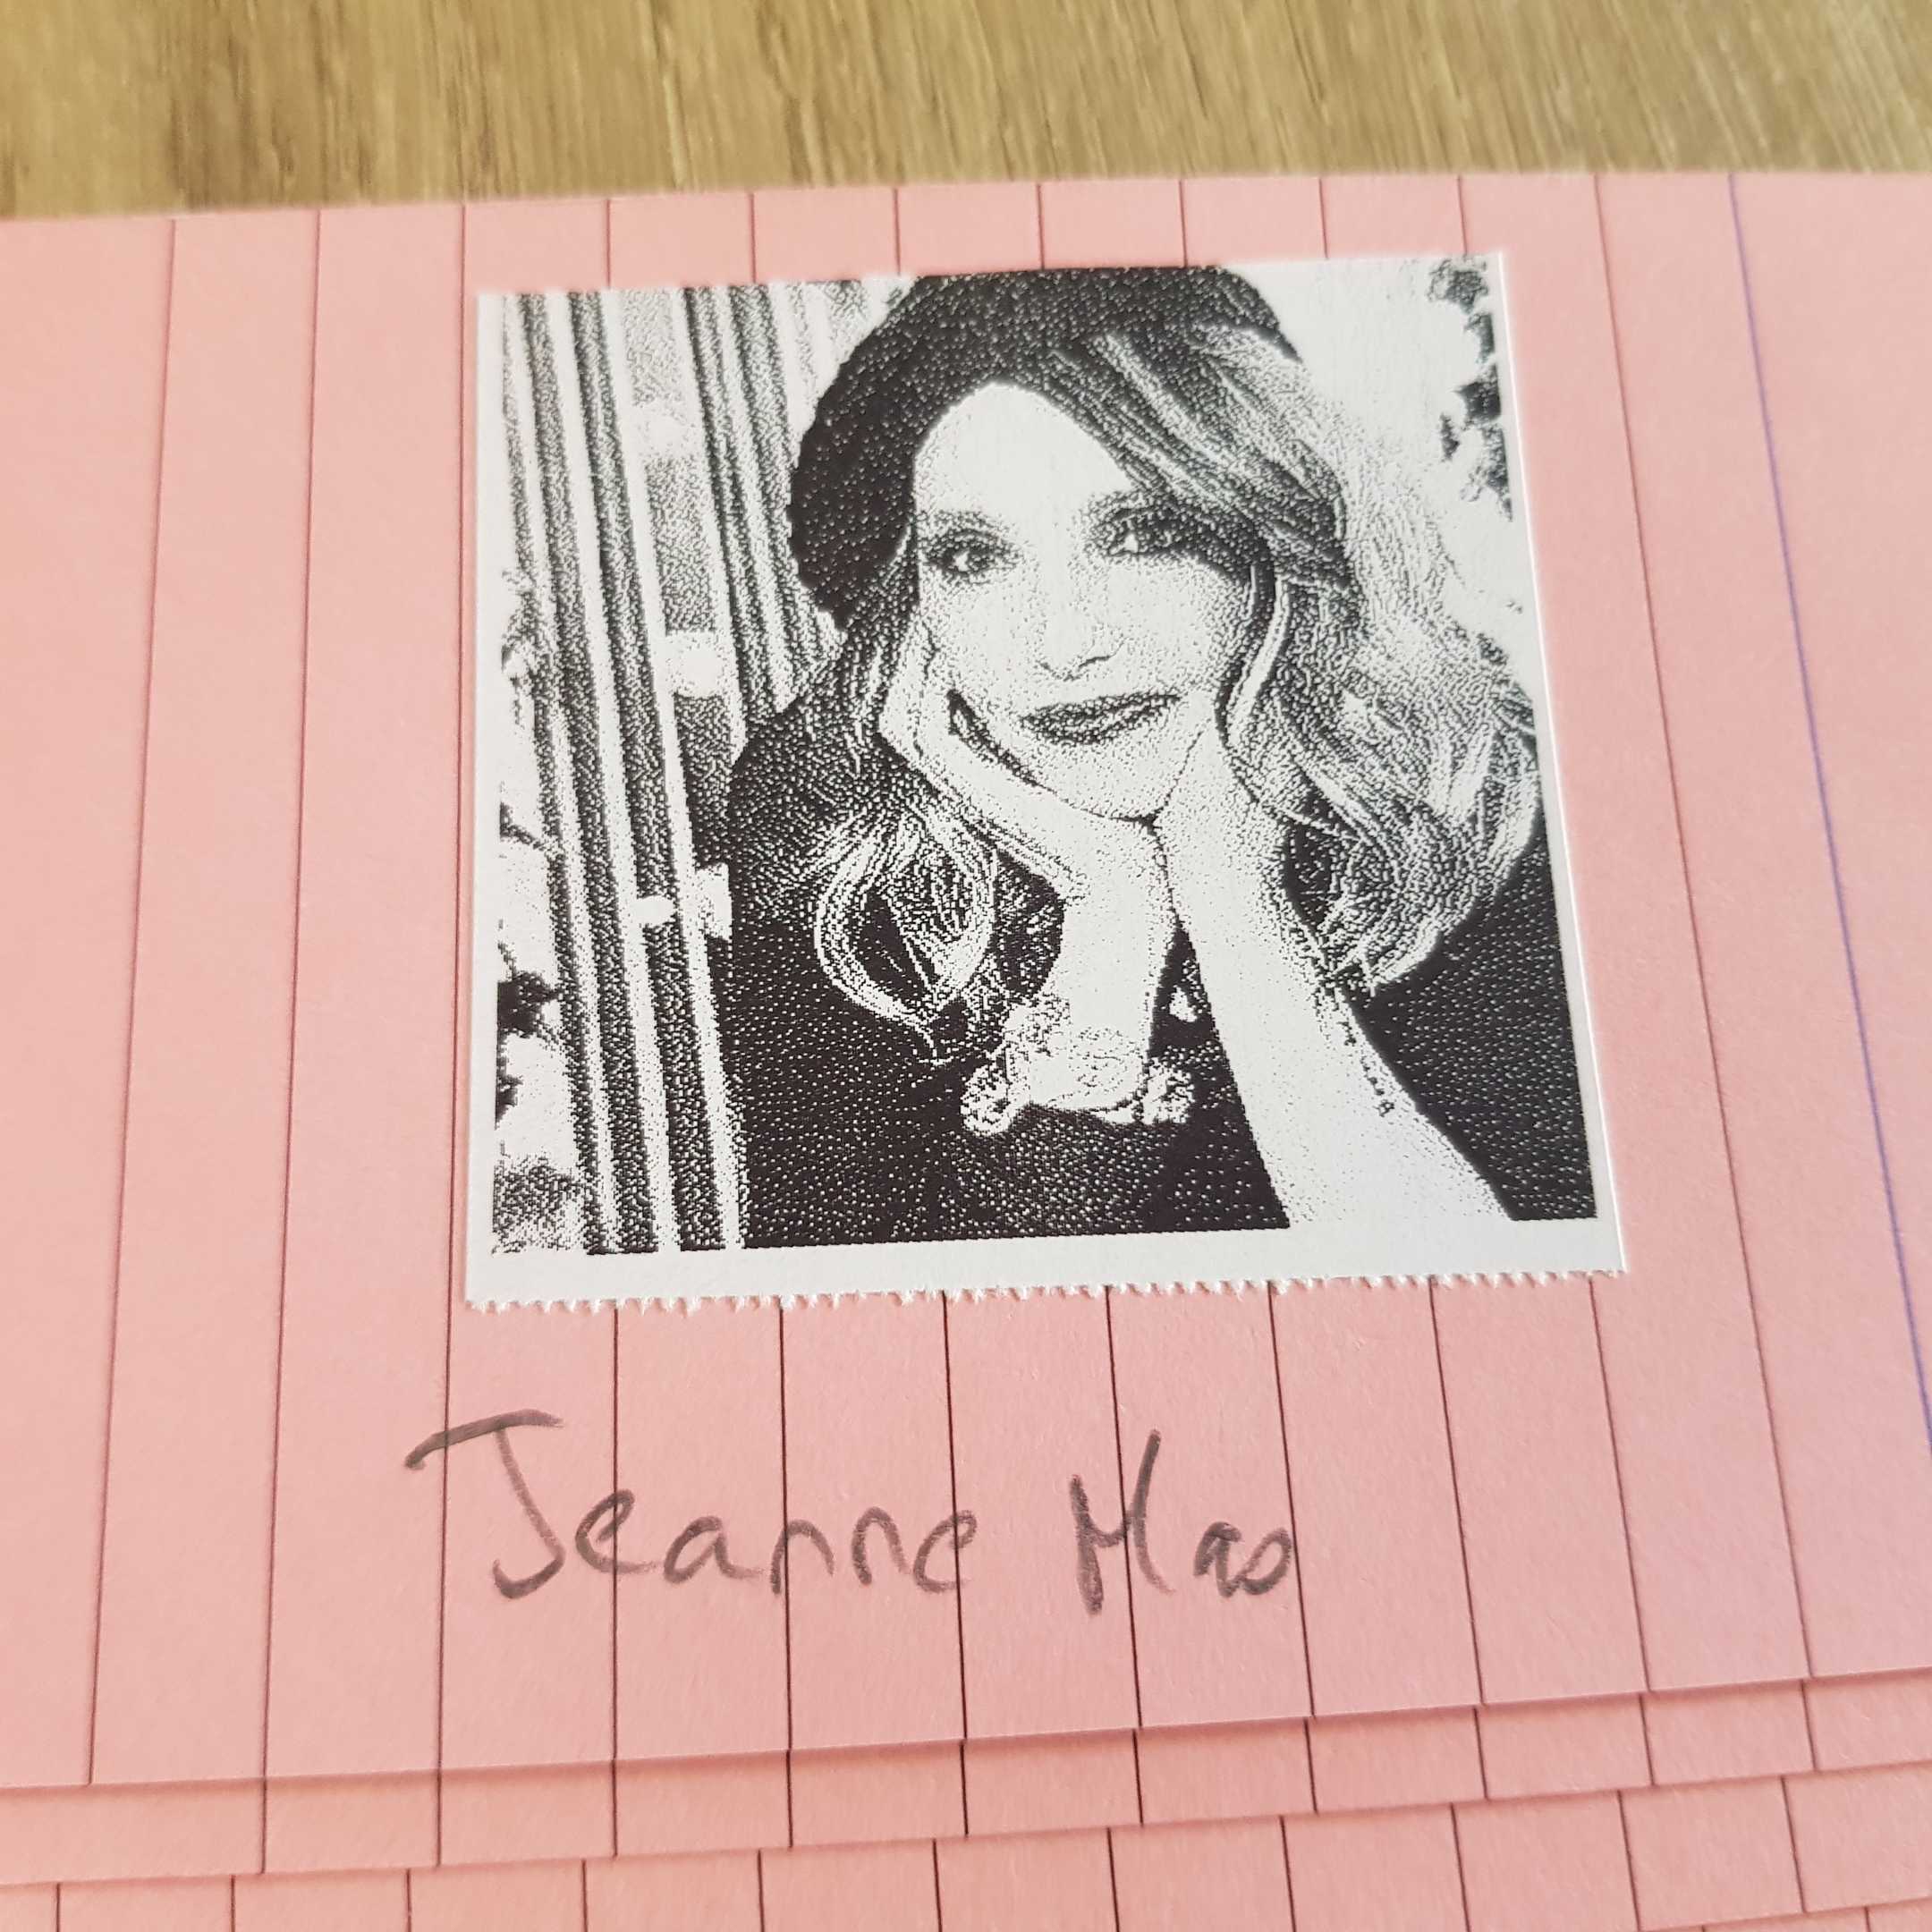 Jeanne Mas